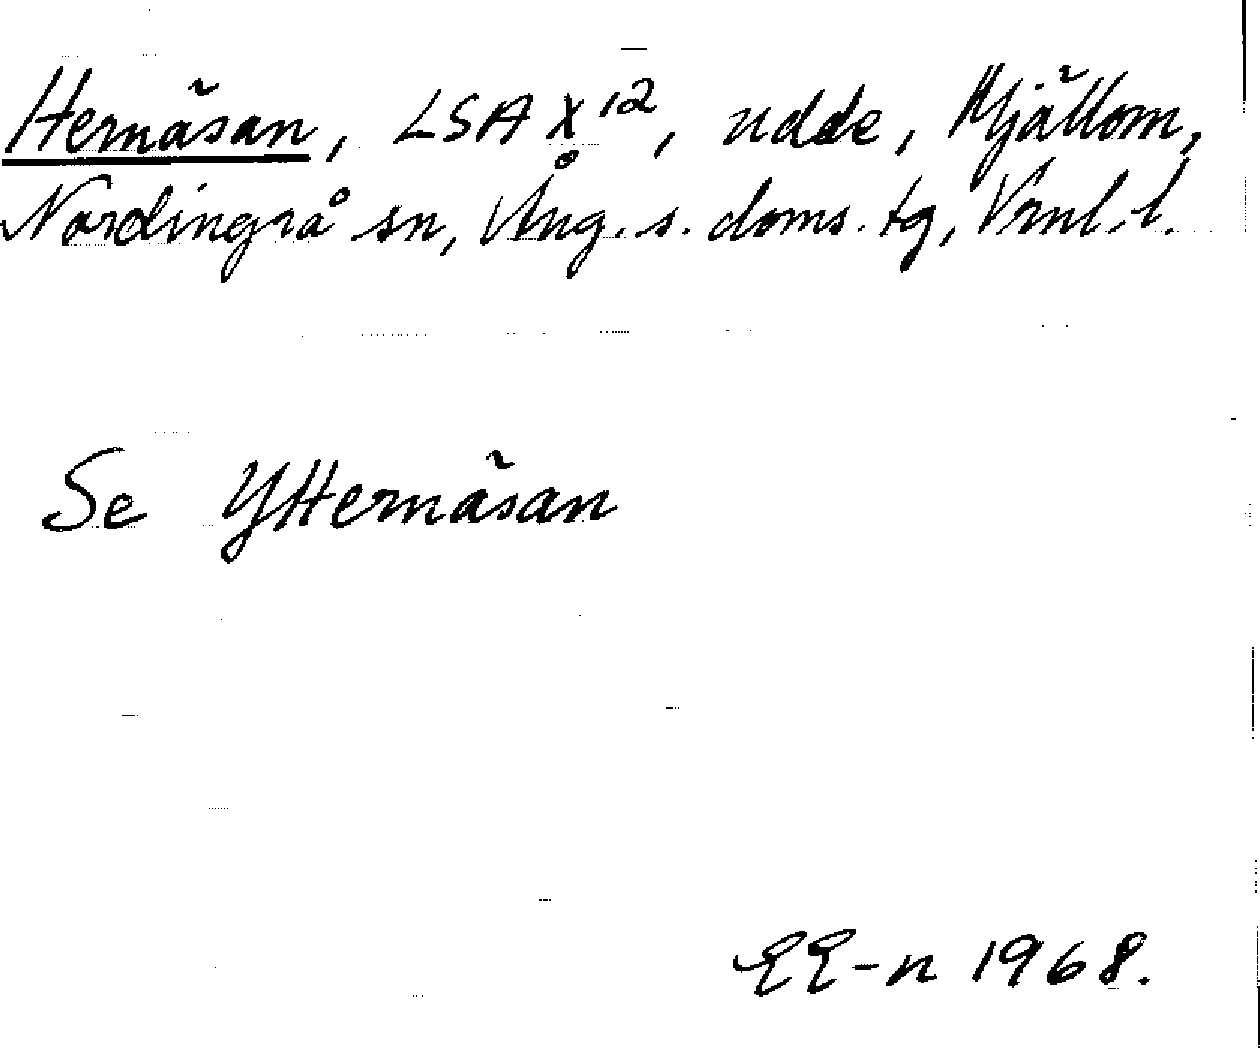 Hernäsan, LSA X 12, udde, Mjällom,
Nordingrå sn, Ång. s. doms. tg, Vrnl. l.
Se Ytternäsan
EE-n 1968.